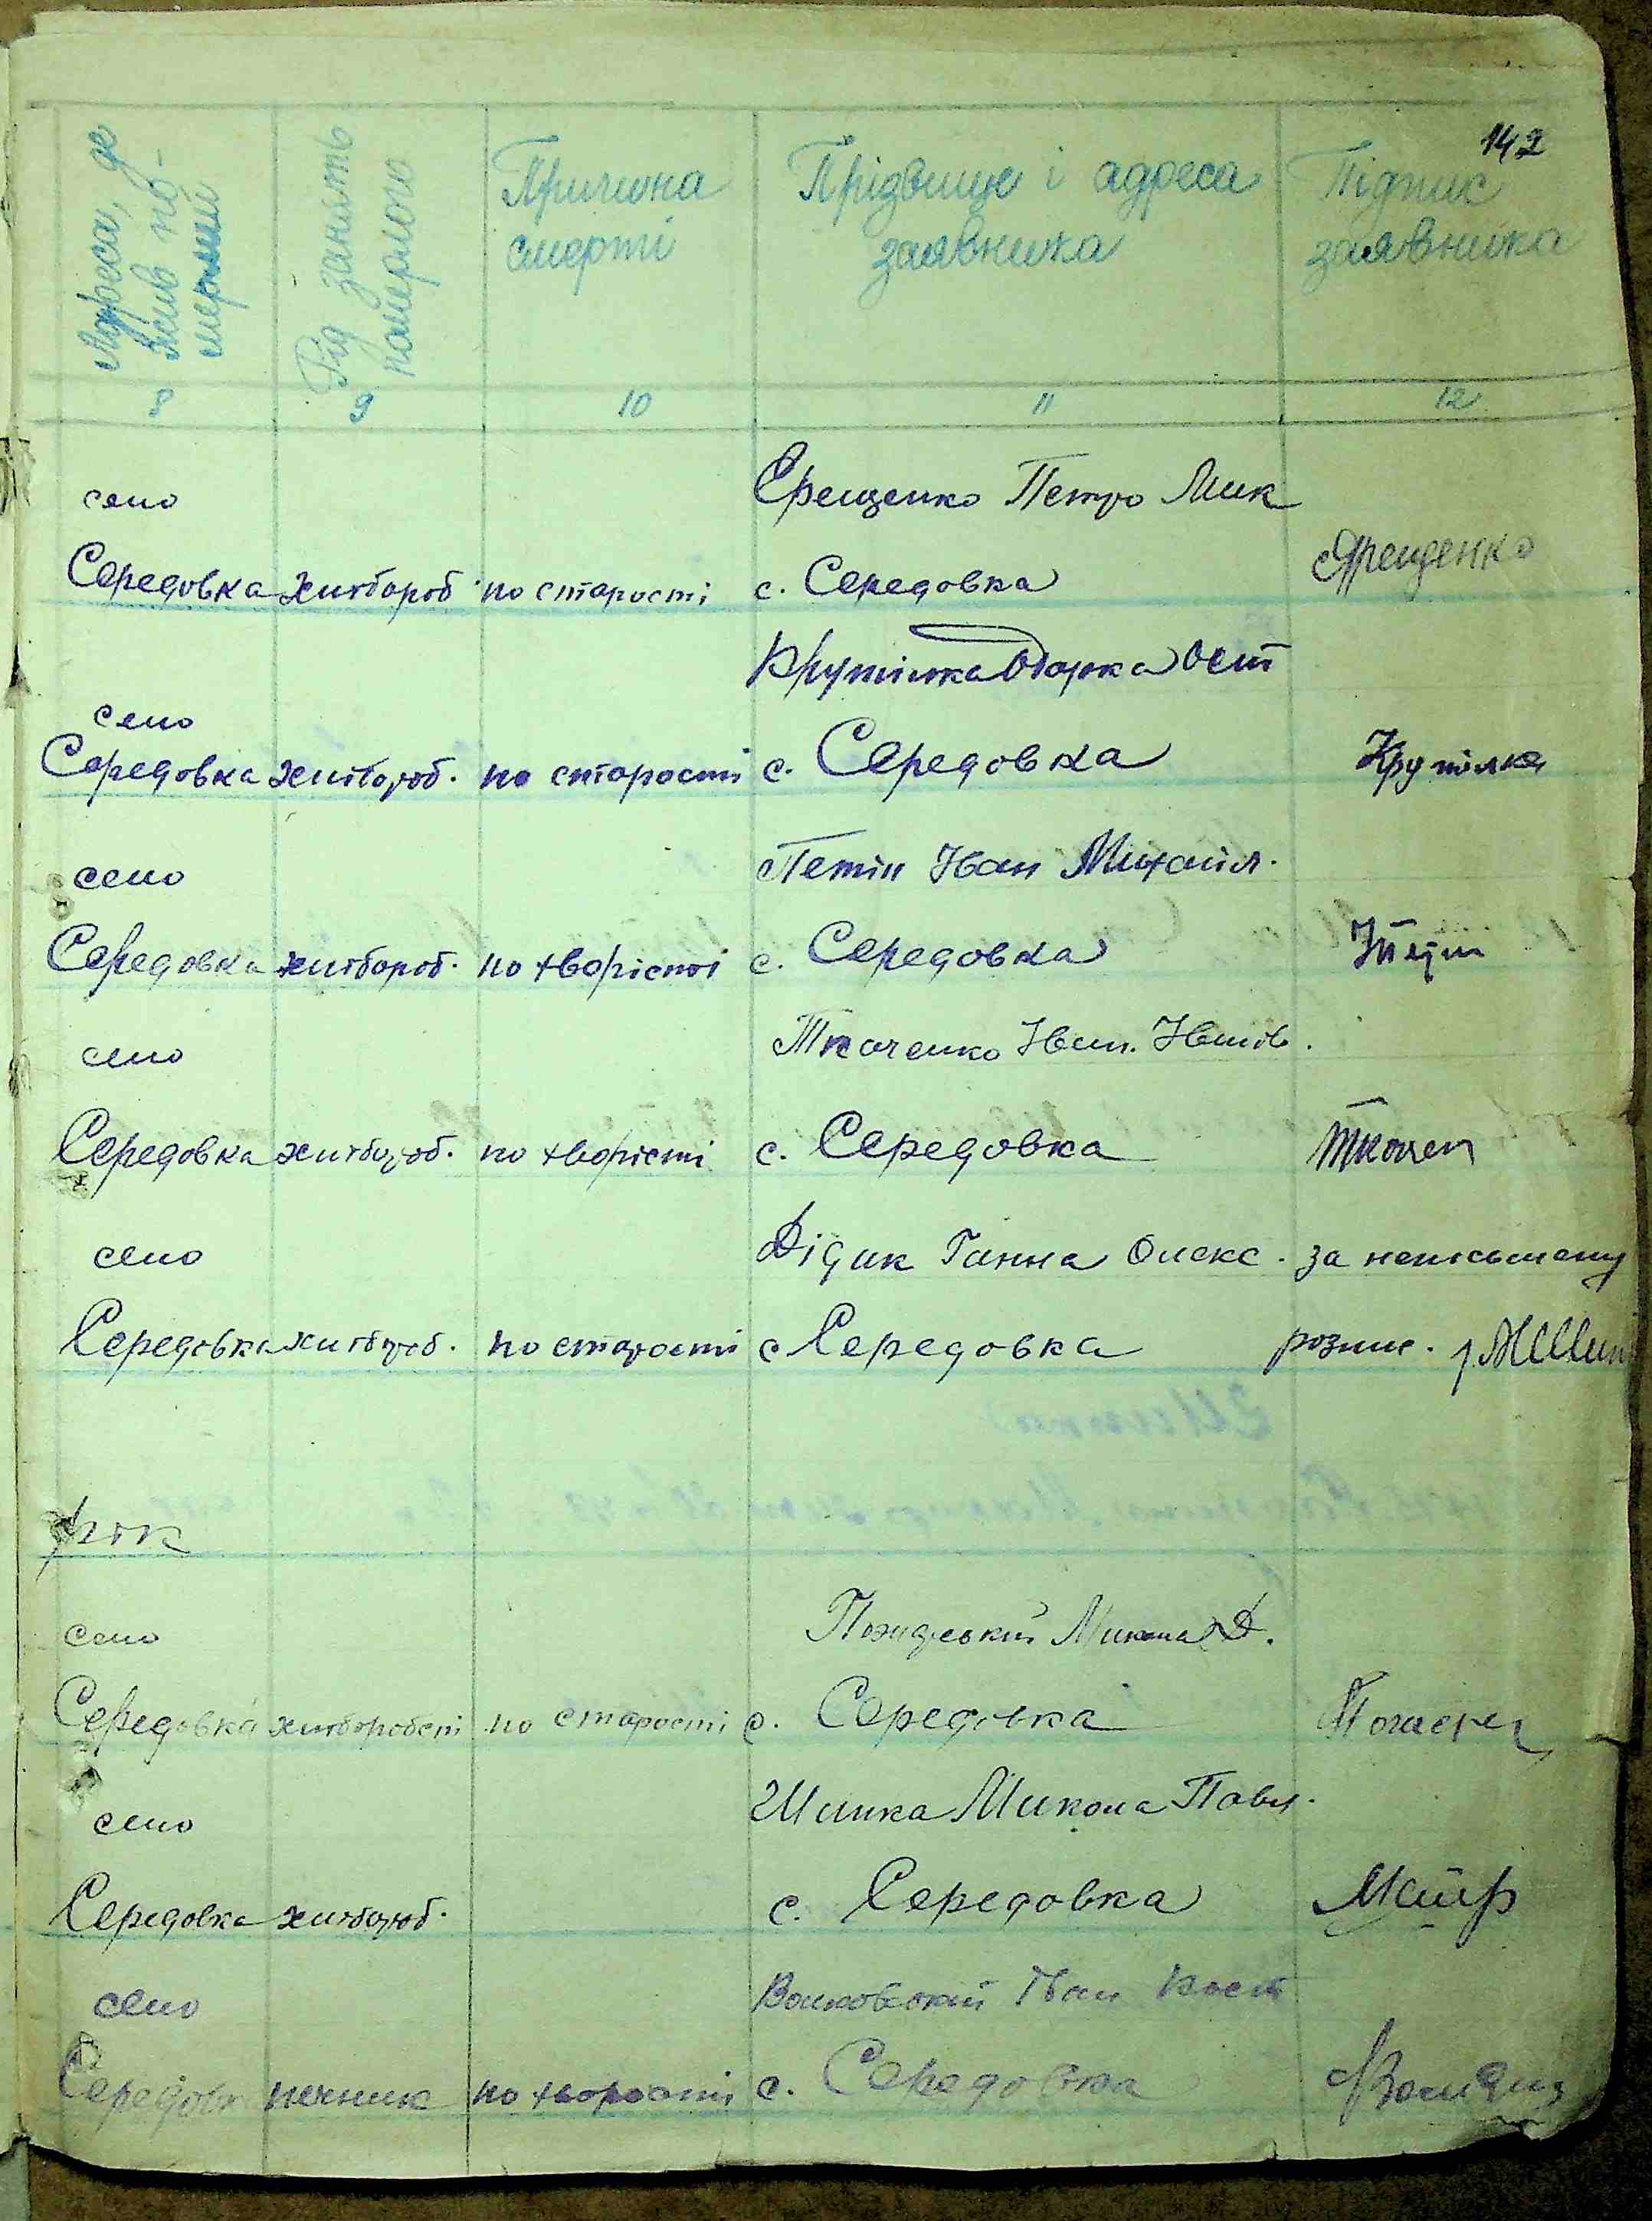 142
Адреса, де
жив по-
мерлий
Рід занять
померлого
Причина
смерті
Прізвище і адреса
заявника
Підпис
заявника
8 9 10 11 12
село Єрещенко Петро Мик
Середовка хлібороб. по старості с. Середовка Ярещенко
Крутілка Одарка Ост
село
Середовка хлібороб. по старості с. Середовка Крутілка
село Петін Іван Михайл.
Середовка хлібороб. по хворісті с. Середовка
село Ткаченко Іван. Іванов.
Середовка хлібороб. по хворісті с. Середовка Ткачен
село Дідик Ганна Олекс. за неписьмену
Середовка хлібороб. по старості с Середовка розпис.
рік
село Микола Д.
Середовка хлібороб по старості с. Середовка
село Шишка Микола Павл.
Середовка хлібороб. с. Середовка
село Волковский Іван Кост
Середовк печник по хворости с. Середовка